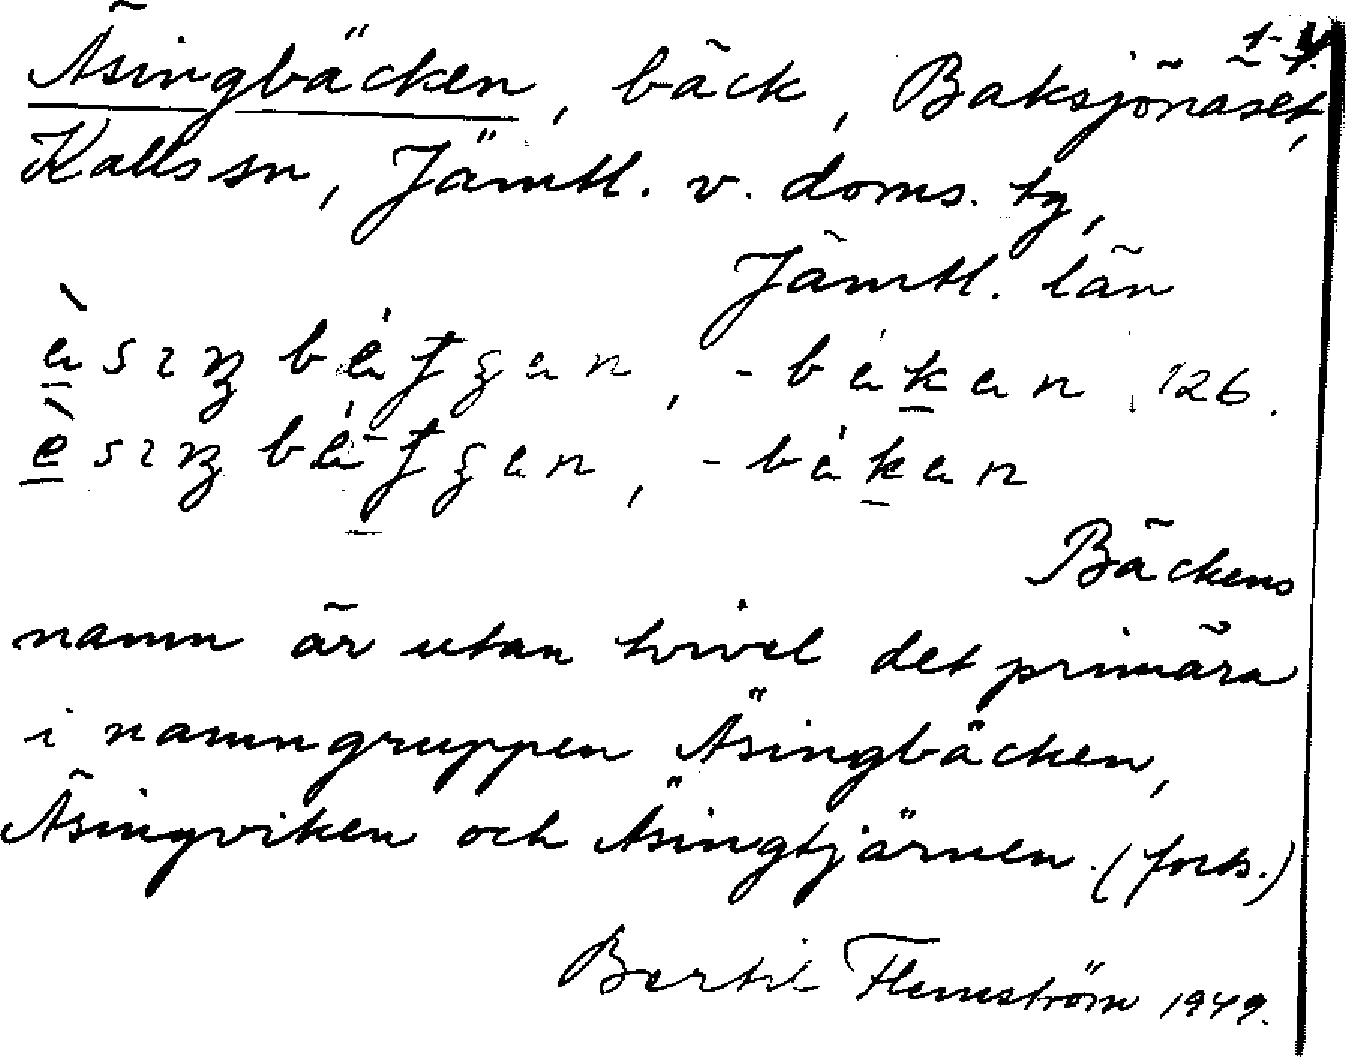 1-4.
Äsingbäcken, bäck, Baksjönäset,
Kalls sn, Jämtl. v. doms. tg,
Jämtl. län
126.
Bäckens
namn är utan tvivel det primära
i namngruppen Äsingbäcken,
Äsingviken och Äsingtjärnen. (forts.)
Bertil Flemström 1949.